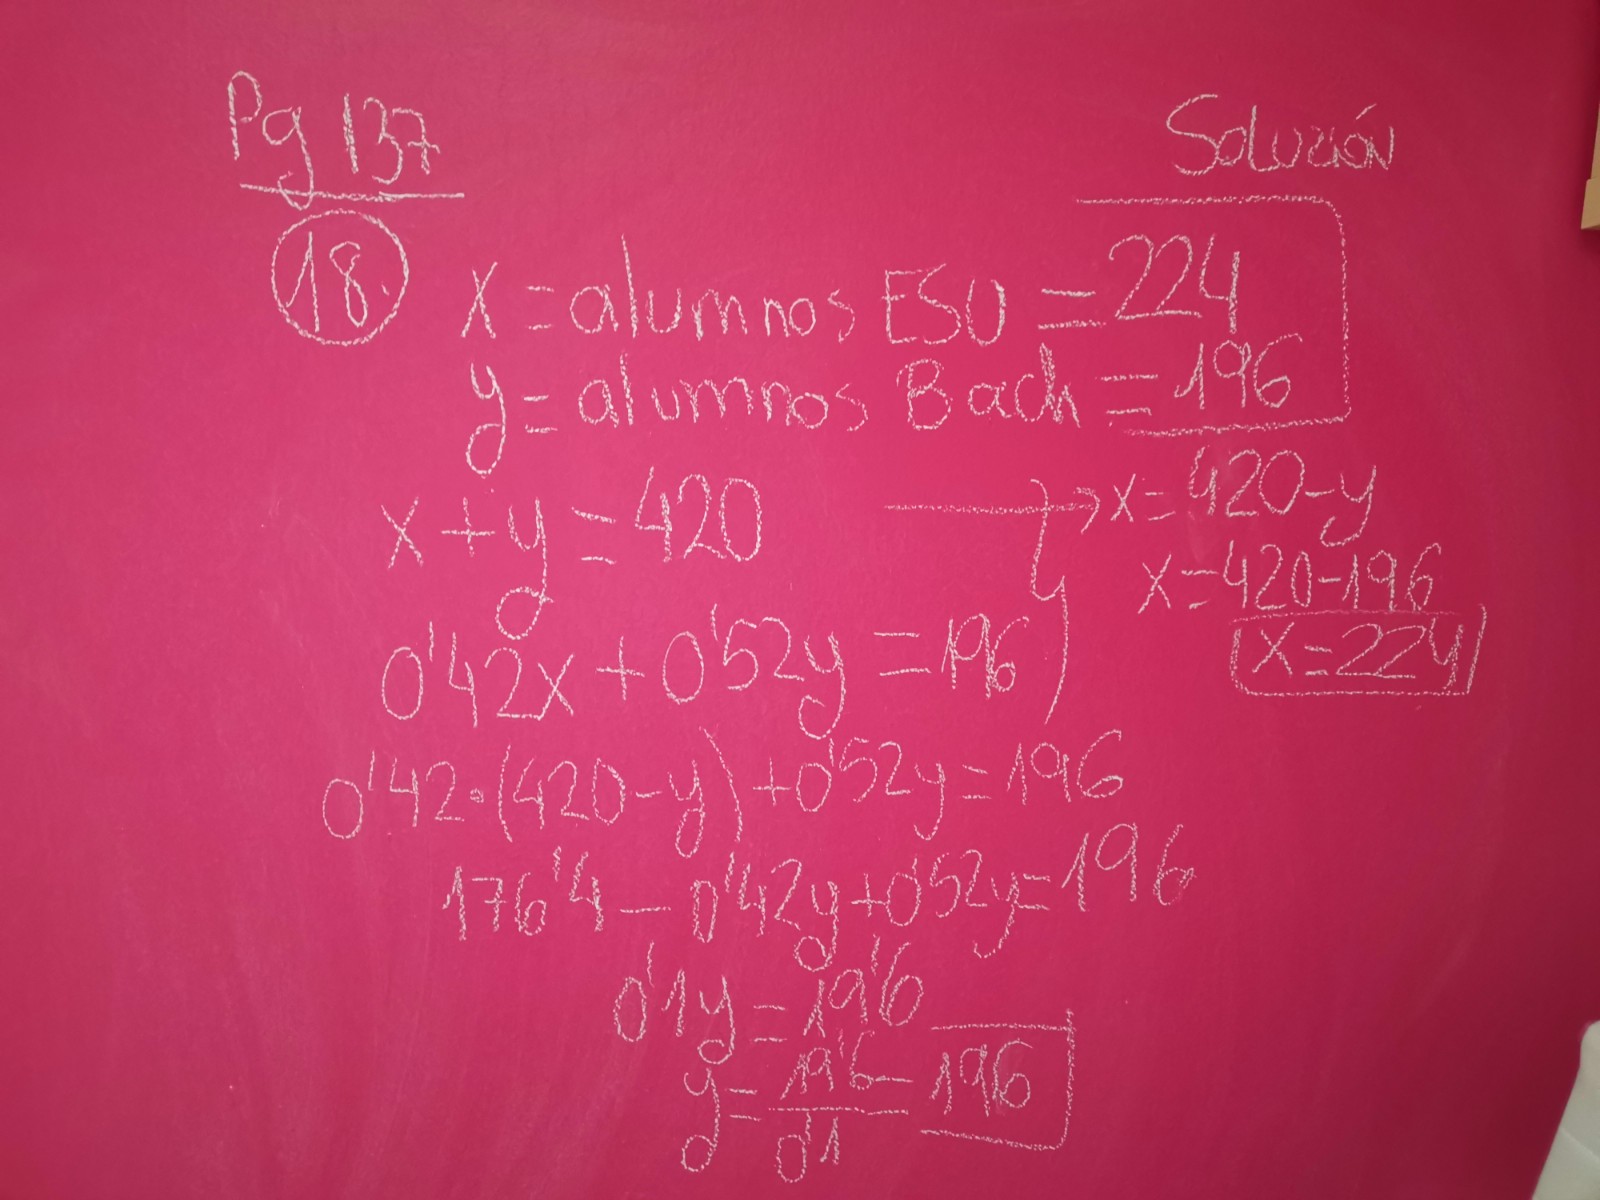 Pg 137
Solución
18.
x = alumnos ESO = 224
y = alumnos Bach = 196
x + y = 420 → x = 420 - y
x = 420 - 196
x = 224
0'42x + 0'52y = 196
0'42·(420 - y) + 0'52y = 196
176'4 - 0'42y + 0'52y = 196
0'1y = 19'6
y = 19'6 / 0'1 = 196